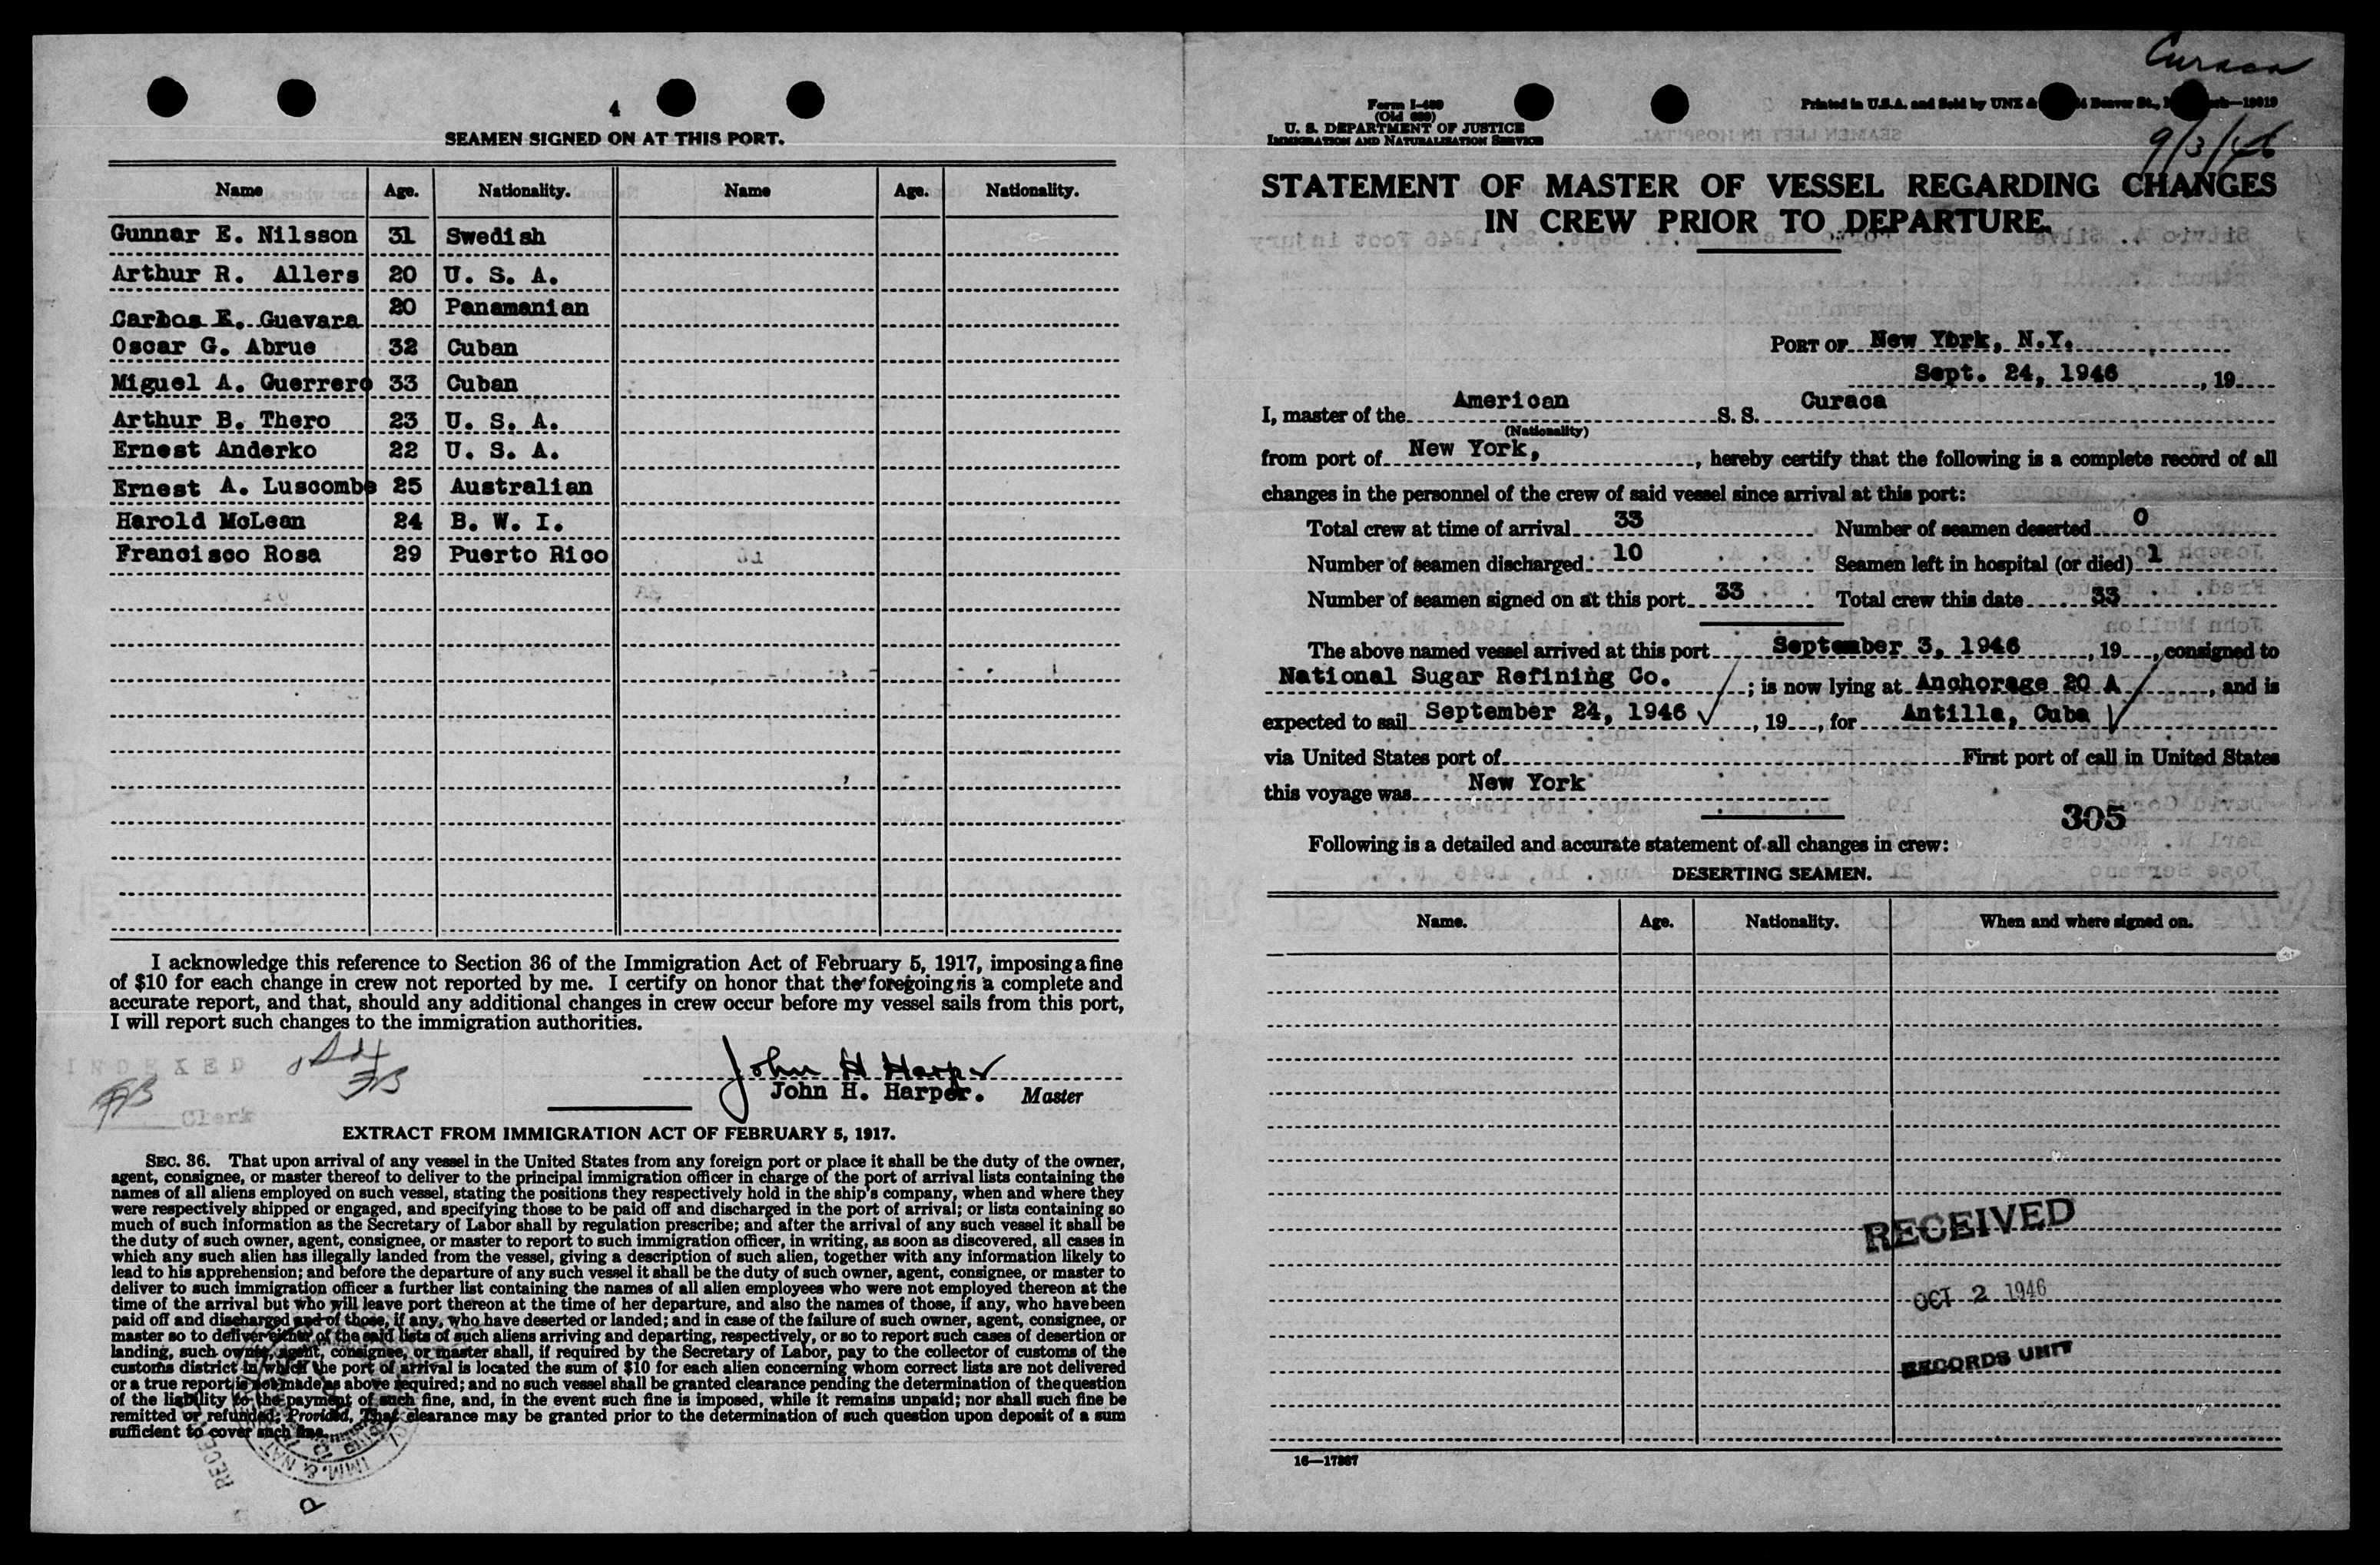 4
SEAMEN SIGNED ON AT THIS PORT.
Name Age. Nationality. Name Age. Nationality.
Gunnar E. Nilsson 31 Swedish
Arthur R. Allers 20 U. S. A.
Carlos E. Guevara 20 Panamanian
Oscar G. Abrue 32 Cuban
Miguel A. Guerrero 33 Cuban
Arthur B. Thero 23 U. S. A.
Ernest Anderko 22 U. S. A.
Ernest A. Luscombe 25 Australian
Harold McLean 24 B. W. I.
Francisco Rosa 29 Puerto Rico
I acknowledge this reference to Section 36 of the Immigration Act of February 5, 1917, imposing a fine
of $10 for each change in crew not reported by me. I certify on honor that the foregoing is a complete and
accurate report, and that, should any additional changes in crew occur before my vessel sails from this port,
I will report such changes to the immigration authorities.
INDEXED
Clerk
John H Harper
John H. Harper. Master
EXTRACT FROM IMMIGRATION ACT OF FEBRUARY 5, 1917.
SEC. 36. That upon arrival of any vessel in the United States from any foreign port or place it shall be the duty of the owner,
agent, consignee, or master thereof to deliver to the principal immigration officer in charge of the port of arrival lists containing the
names of all aliens employed on such vessel, stating the positions they respectively hold in the ship's company, when and where they
were respectively shipped or engaged, and specifying those to be paid off and discharged in the port of arrival; or lists containing so
much of such information as the Secretary of Labor shall by regulation prescribe; and after the arrival of any such vessel it shall be
the duty of such owner, agent, consignee, or master to report to such immigration officer, in writing, as soon as discovered, all cases in
which any such alien has illegally landed from the vessel, giving a description of such alien, together with any information likely to
lead to his apprehension; and before the departure of any such vessel it shall be the duty of such owner, agent, consignee, or master to
deliver to such immigration officer a further list containing the names of all alien employees who were not employed thereon at the
time of the arrival but who will leave port thereon at the time of her departure, and also the names of those, if any, who have been
paid off and discharged and of those, if any, who have deserted or landed; and in case of the failure of such owner, agent, consignee, or
master so to deliver either of the said lists of such aliens arriving and departing, respectively, or so to report such cases of desertion or
landing, such owner, agent, consignee, or master shall, if required by the Secretary of Labor, pay to the collector of customs of the
customs district in which the port of arrival is located the sum of $10 for each alien concerning whom correct lists are not delivered
or a true report is not made as above required; and no such vessel shall be granted clearance pending the determination of the question
of the liability to the payment of such fine, and, in the event such fine is imposed, while it remains unpaid; nor shall such fine be
remitted or refunded: Provided, That clearance may be granted prior to the determination of such question upon deposit of a sum
sufficient to cover such fine.
Curaca
9/3/46
Form I-489
(Old 689)
U. S. DEPARTMENT OF JUSTICE
IMMIGRATION AND NATURALIZATION SERVICE
Printed in U.S.A. and Sold by UNZ & Beaver St.,
STATEMENT OF MASTER OF VESSEL REGARDING CHANGES
IN CREW PRIOR TO DEPARTURE.
PORT OF New York, N.Y.
Sept. 24, 1946, 19
I, master of the American S. S. Curaca
(Nationality)
from port of New York, , hereby certify that the following is a complete record of all
changes in the personnel of the crew of said vessel since arrival at this port:
Total crew at time of arrival 33 Number of seamen deserted 0
Number of seamen discharged 10 Seamen left in hospital (or died) 1
Number of seamen signed on at this port 33 Total crew this date 33
The above named vessel arrived at this port September 3, 1946, 19, consigned to
National Sugar Refining Co. ; is now lying at Anchorage 20 A, and is
expected to sail September 24, 1946, 19, for Antilla, Cuba
via United States port of First port of call in United States
this voyage was New York
305
Following is a detailed and accurate statement of all changes in crew:
DESERTING SEAMEN.
Name. Age. Nationality. When and where signed on.
RECEIVED
OCT 2 1946
RECORDS UNIT
16—17367